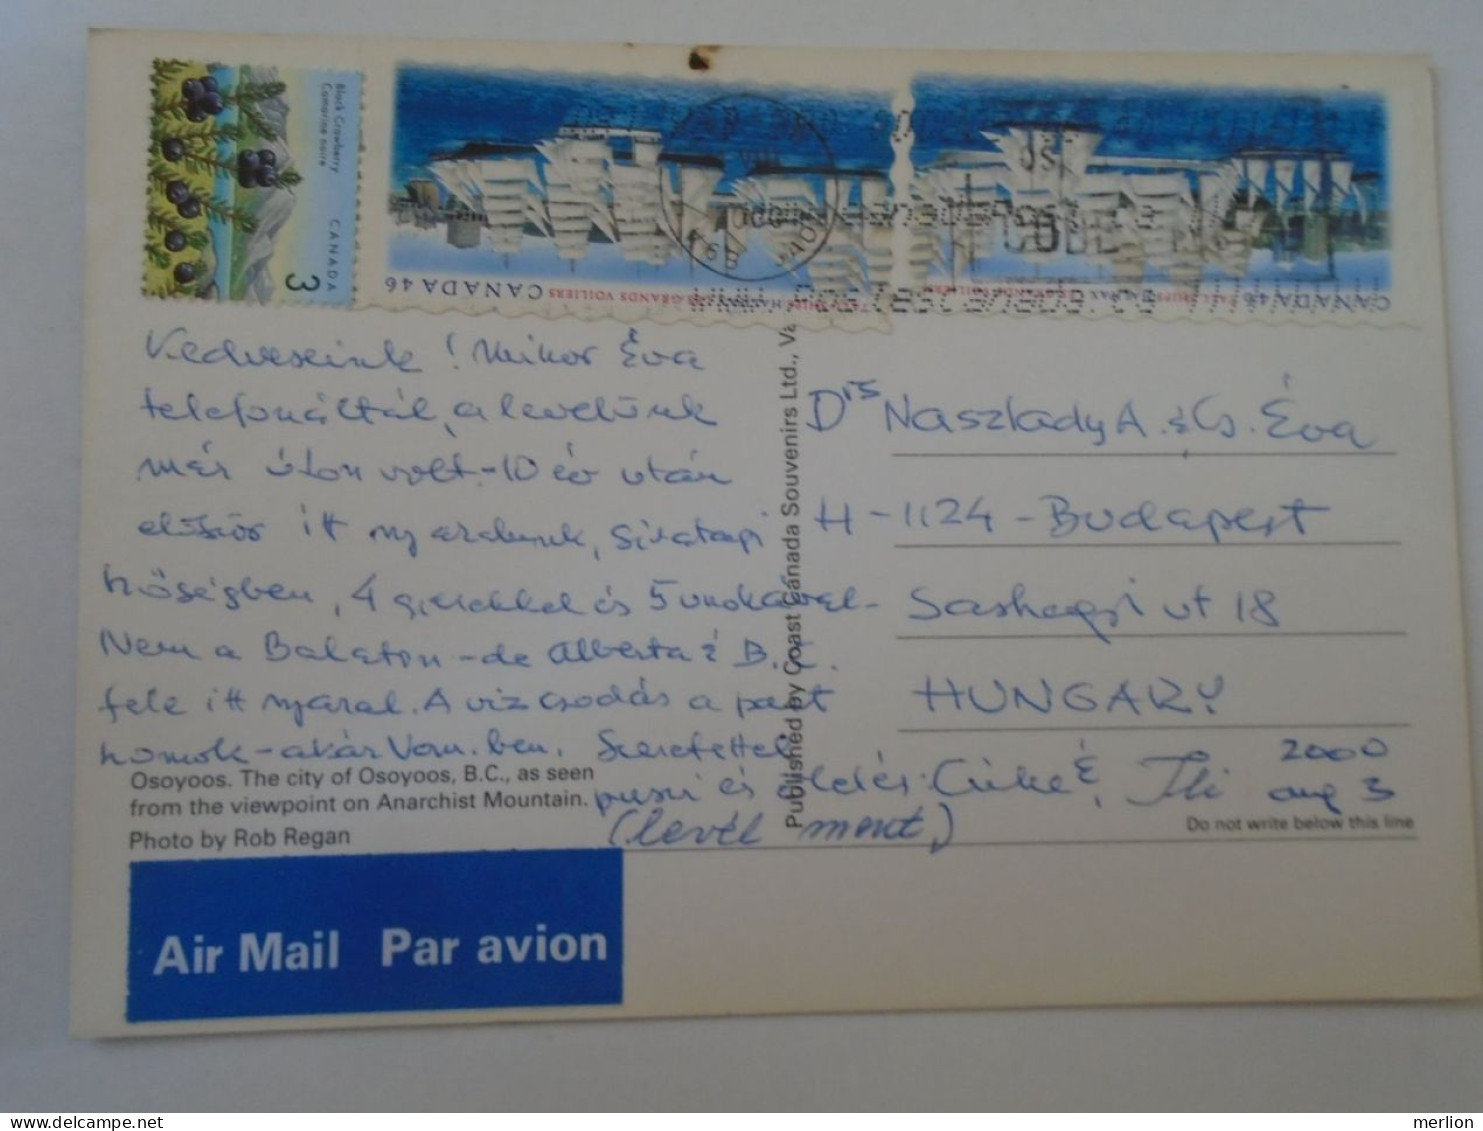 Black Crowberry
Camarine noire
CANADA
3
CANADA 46
GRANDS VOILIERS
CANADA 46
Kedveseink! Mikor Éva
telefonáltál, a levelünk
már úton volt. - 10 év után
először itt nyaralunk, sivatagi
hőségben, 4 gyerekkel és 5 unokával -
Nem a Balaton - de Alberta & B.C.
fele itt nyaral. A víz csodás a part
homok - akár Vom. ben. Szeretettel
puszi és ölelés
(levél ment)
2000
aug 3
Drs Naszlady A. & Cs. Éva
H - 1124 - Budapest
Sashegyi út 18
HUNGARY
Published by Coast Canada Souvenirs Ltd., Va
Osoyoos. The city of Osoyoos, B.C., as seen
from the viewpoint on Anarchist Mountain.
Photo by Rob Regan
Do not write below this line
Air Mail Par avion
merlion